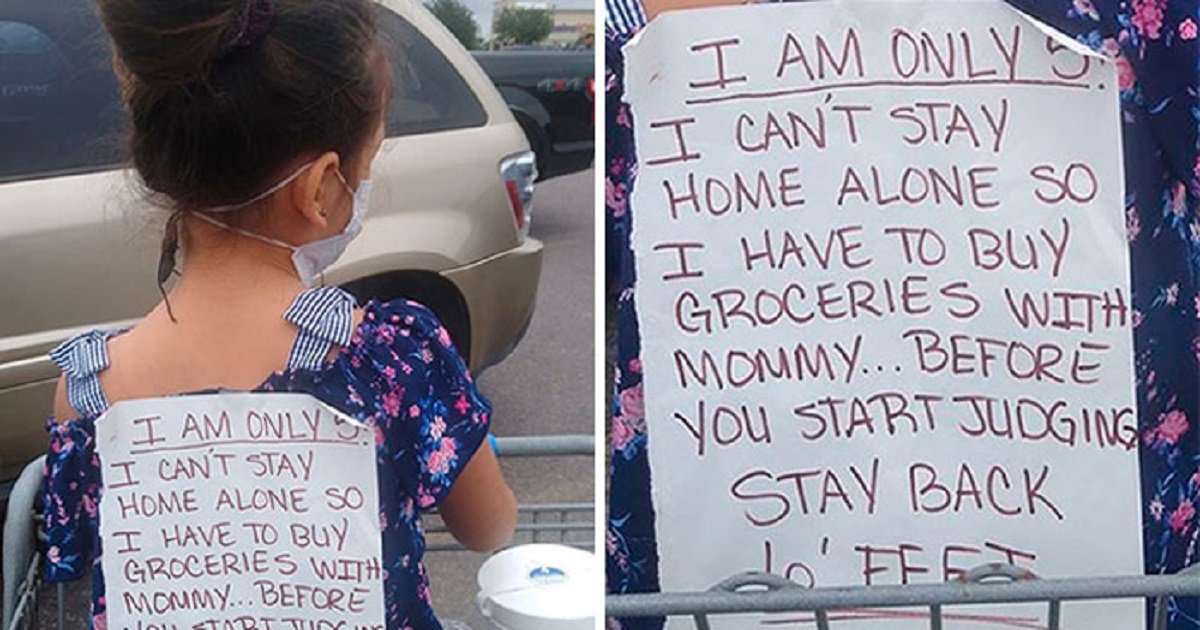 I AM ONLY 5.
I CAN'T STAY
HOME ALONE SO
I HAVE TO BUY
GROCERIES WITH
MOMMY... BEFORE
YOU START JUDGING
I AM ONLY 5.
I CAN'T STAY
HOME ALONE SO
I HAVE TO BUY
GROCERIES WITH
MOMMY... BEFORE
YOU START JUDGING
STAY BACK
6' FEET